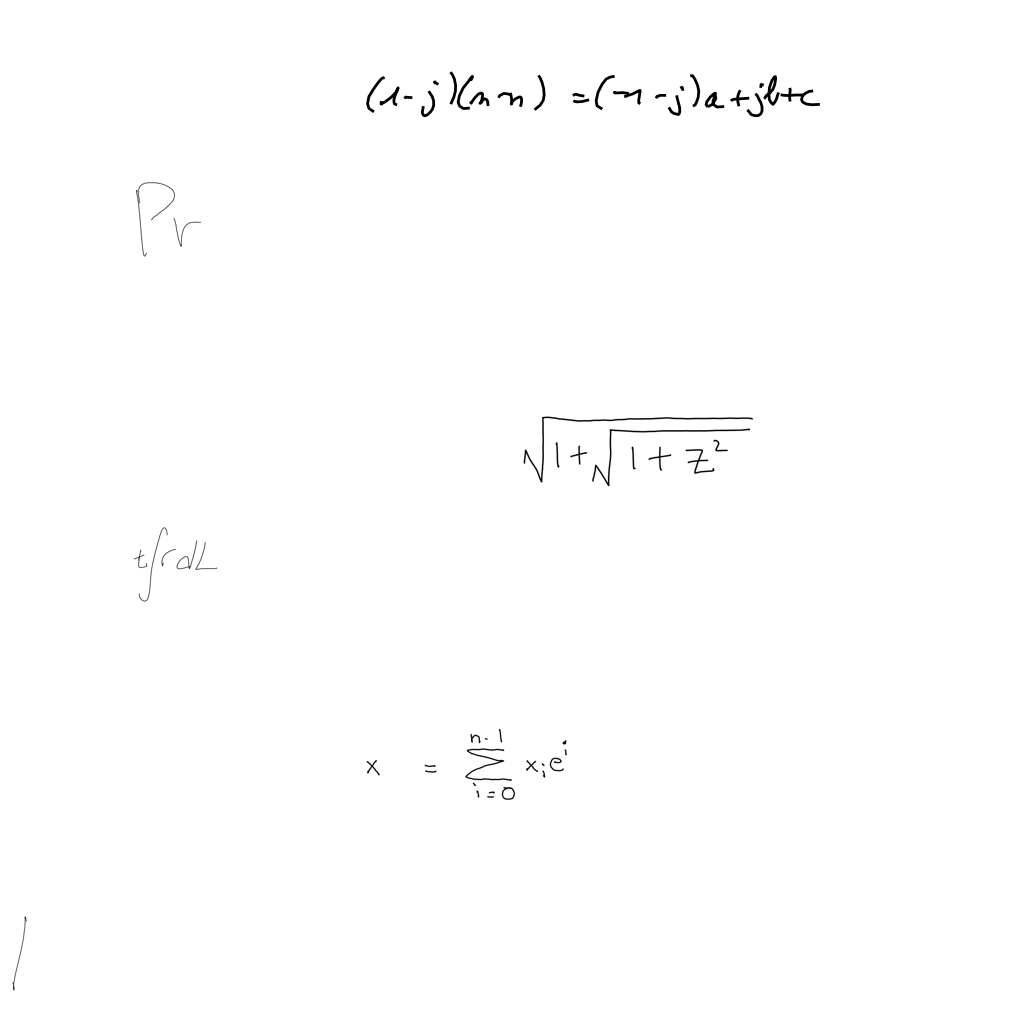 (1-j)(n-n) = (n-j)a+jb+c
Pr
\sqrt{1+\sqrt{1+z^2}}
x = \sum_{i=0}^{n-1} x_i e^i